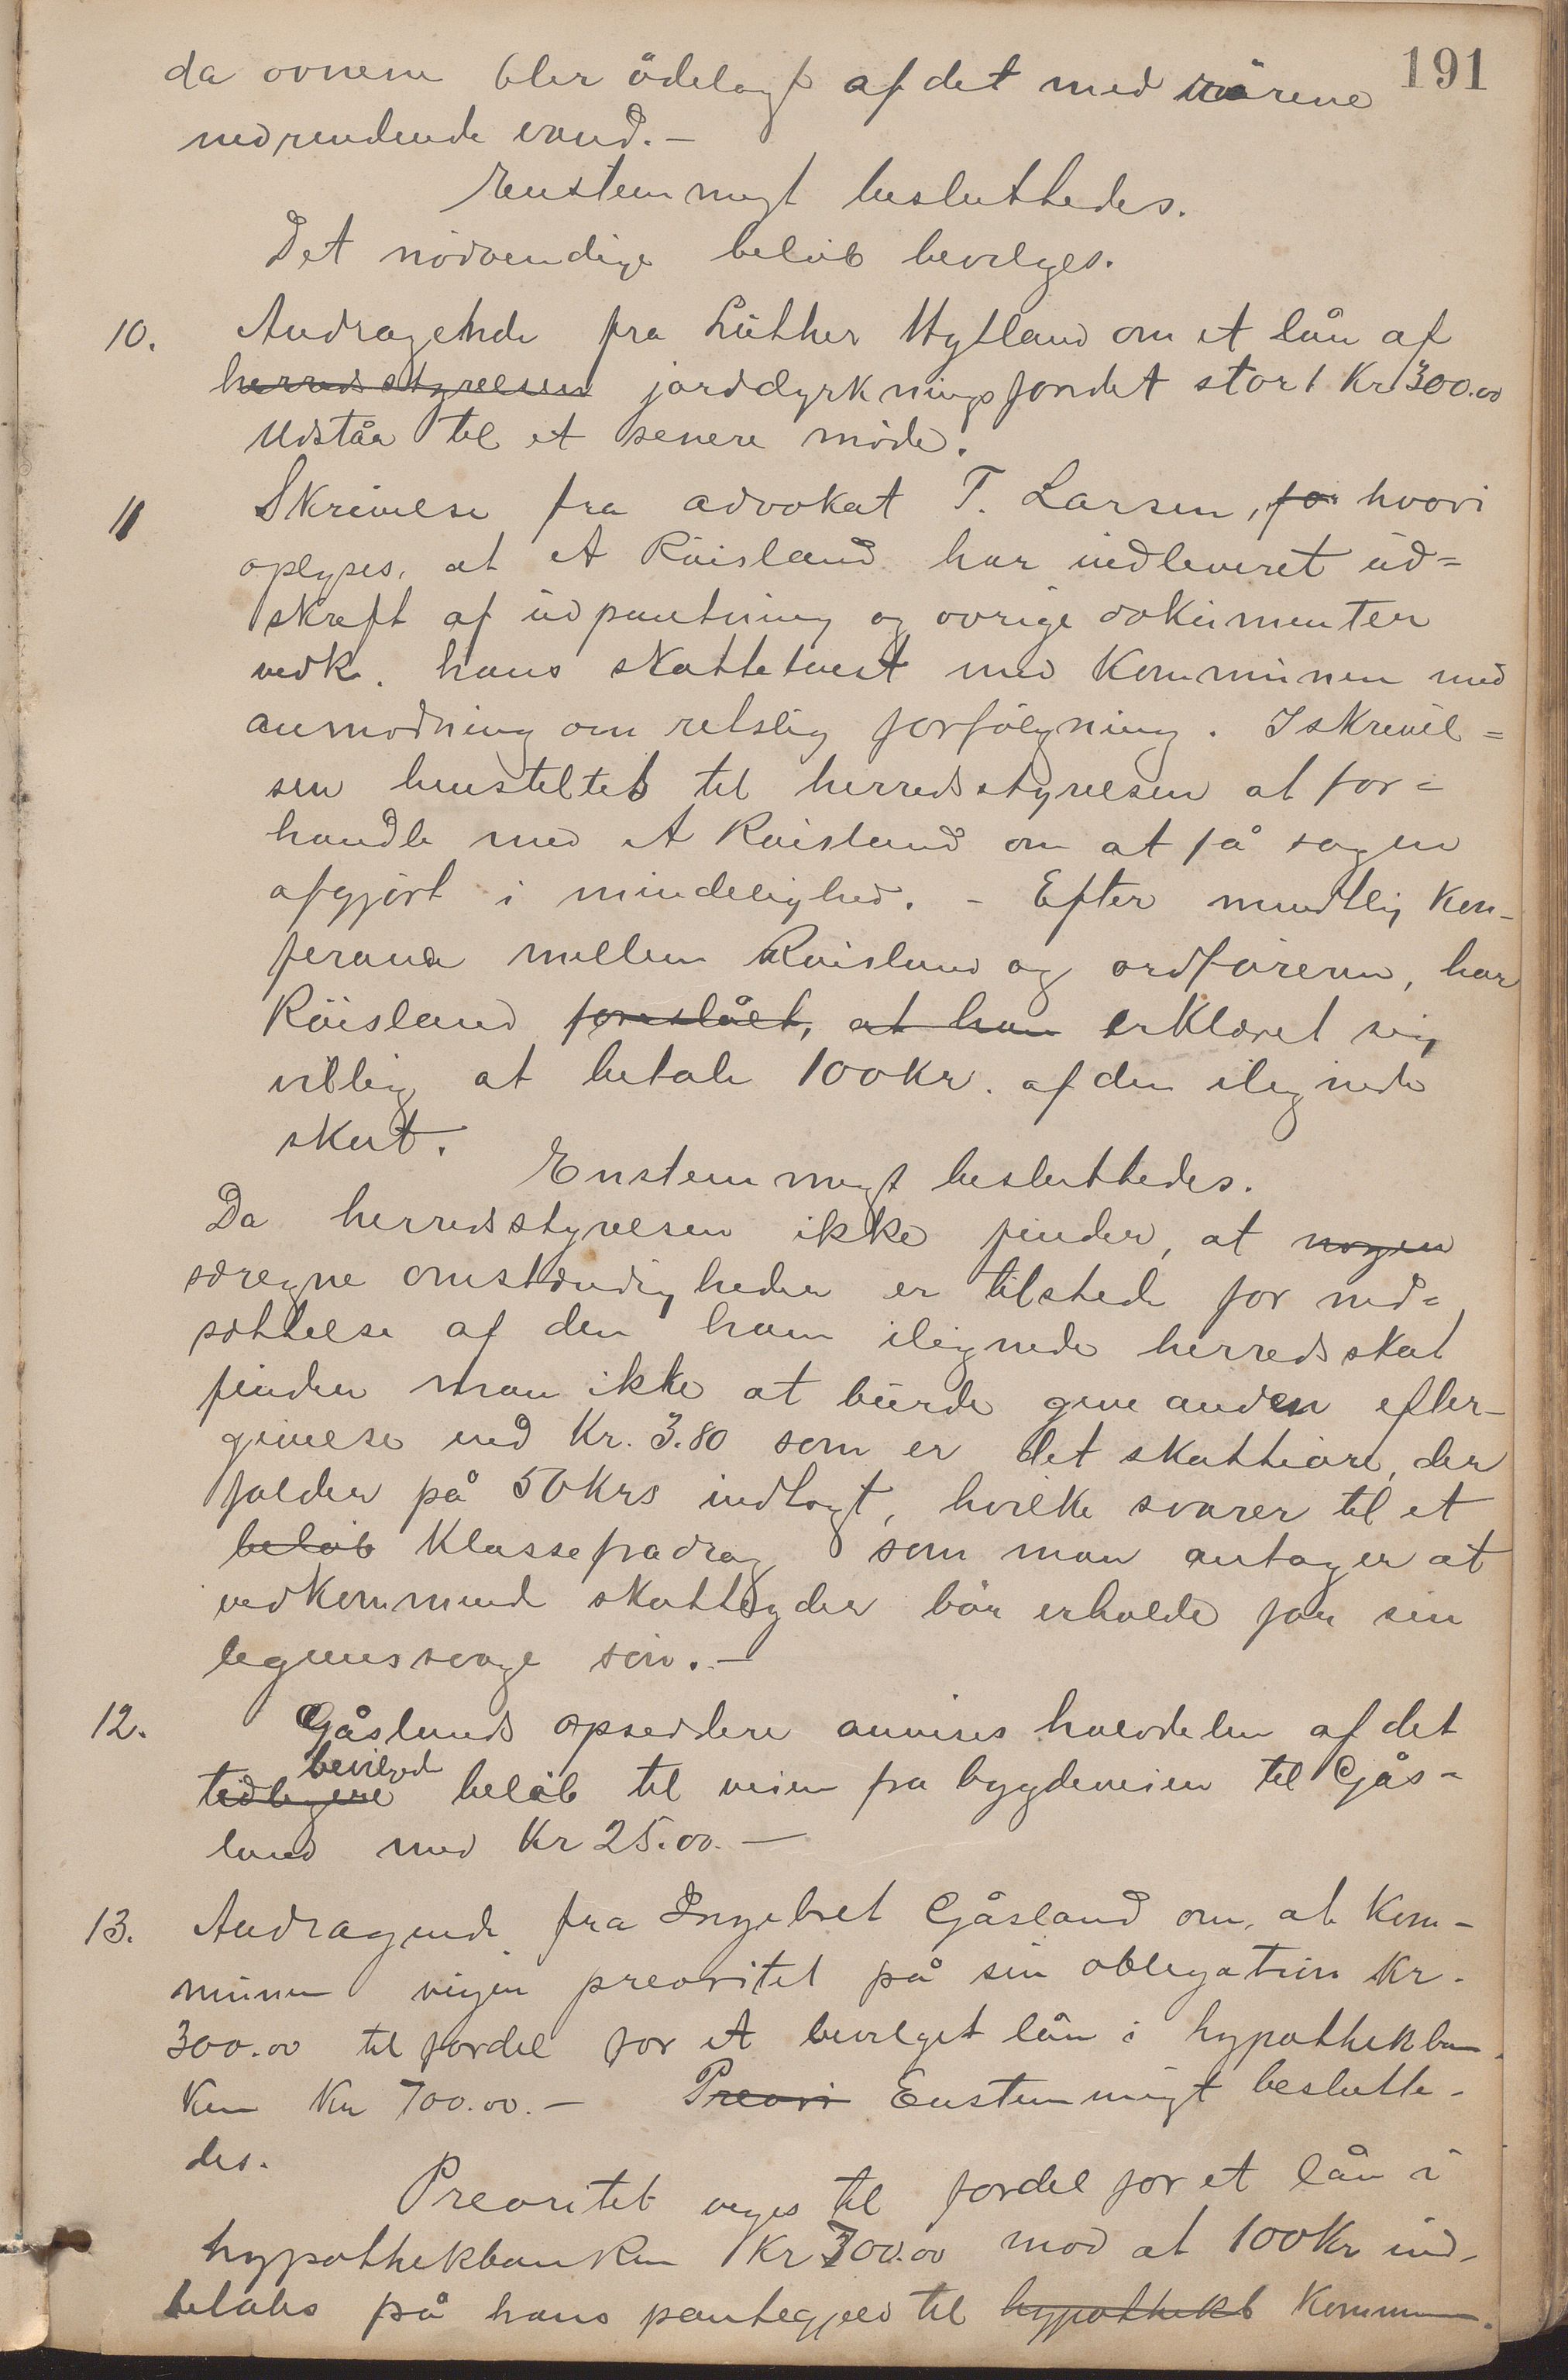 191
da ovnene bler ödelagt af det med rörene
nedrendende vand.-
Enstemmigt besluttedes.
Det nödvendige belöb bevelges.
10. Andragende fra Lüther Hylland om et lån af
herredsstyrelsen jorddyrkningsfondet stort Kr 300.00
Udstår til et senere möde.
11 Skrivelse fra advokat T. Larsen, for hvori
oplyses, at A Röisland har indleveret ud=
skreft af udpantning og övrige dokumenter
vedk. hans skattetvest med Kommunen med
anmodning om retslig forfölgning. I skrivel=
sen henstelles til herredsstyrelsen at for=
handle med A Röisland om at få sagen
afgjört i mindelighed. - Efter mundtlig Kon-
ferance mellem Röisland og ordföreren, har
Röisland foreslået, at han erklæret sig
villig at betale 100 Kr. af den ilegnede
skat.
Enstemmigt besluttedes.
Da herredsstyrelsen ikke finder, at nogen
særegne omstændigheder er tilstede for ned=
sættelse af den ham ilignede herredsskat
finder man ikke at burde give anden efter-
givelse end Kr. 3.80 som er det skatteöre, der
falder på 50 Krs indtægt, hvilke svarer til et
belöb Klassefradrag som man antager at
vedkommende skattegder bör erholde for sin
legemssvage sön.-
12. Gåslands opseddere anvises halvdelen af det
bevilgede
tidligere belöb til veien fra bygdeveien til Gås-
land med Kr 25.00.-
13. Andragende fra Ingebret Gåsland om, at Kom-
munen viger preoritet på sin oblegation Kr.
300.00 til fordel for et bevelget lån i hypothekban-
ken Kr 700.00.- Preori Enstemmigt beslutte-
des.
Preoritet veges til fordel for et lån i
hypothekbanken Kr 700.00 mod at 100 Kr ind-
betales på hans pantegjeld til hypothekb Kommunen.